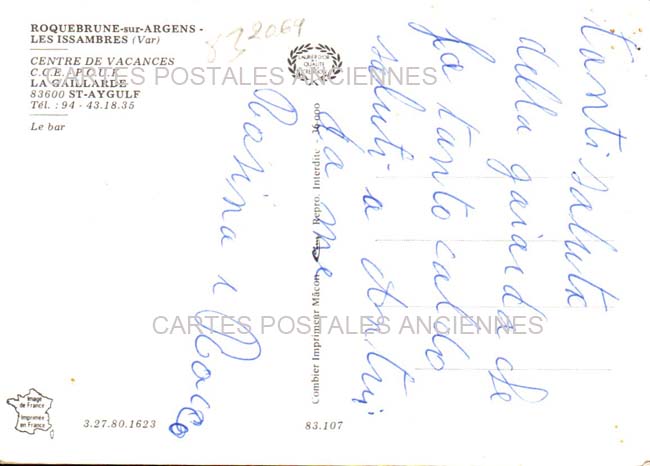 ROQUEBRUNE-sur-ARGENS -
LES ISSAMBRES (Var)
CENTRE DE VACANCES
C.C.E. - P.T.T.
LA GAILLARDE
83600 ST-AYGULF
Tél. : 94 - 43.18.35
Le bar
832069
CARTES POSTALES ANCIENNES
CARTES POSTALES ANCIENNES
tanti saluti
della gaiarda che
fa tanto caldo
saluti a tutti
Rosina e Rocco
Combier Imprimeur Mâcon Repro. Interdite -
Image
de France
Imprimée
en France
3.27.80.1623
83.107